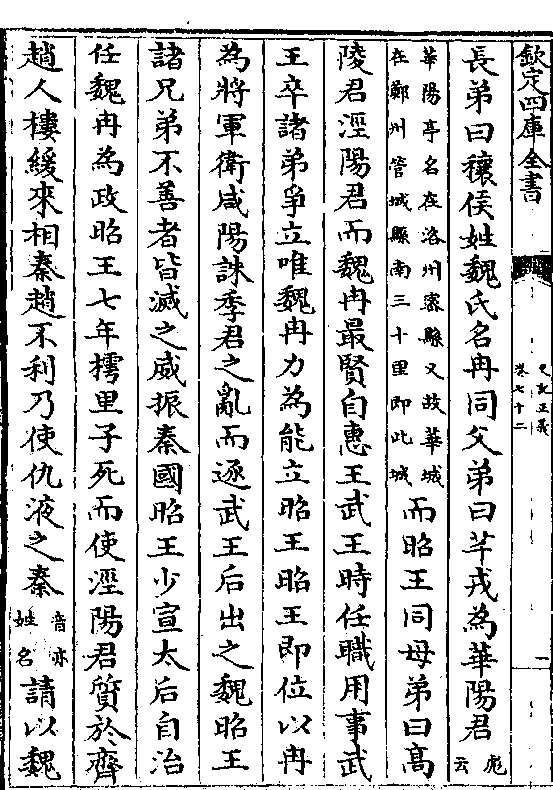 欽定四庫全書
史記正義
卷七十二
一
長弟曰穰侯姓魏氏名冉同父弟曰芊戎為華陽君彪云
華陽亭名在洛州密縣又故華城在鄭州管城縣南三十里即此城而昭王同母弟曰高
陵君涇陽君而魏冉最賢自惠王武王時任職用事武
王卒諸弟爭立唯魏冉力為能立昭王昭王即位以冉
為將軍衛咸陽誅季君之亂而逐武王后出之魏昭王
諸兄弟不善者皆滅之威振秦國昭王少宣太后自治
任魏冉為政昭王七年樗里子死而使涇陽君質於齊
趙人樓緩來相秦趙不利乃使仇液之秦音亦姓名請以魏